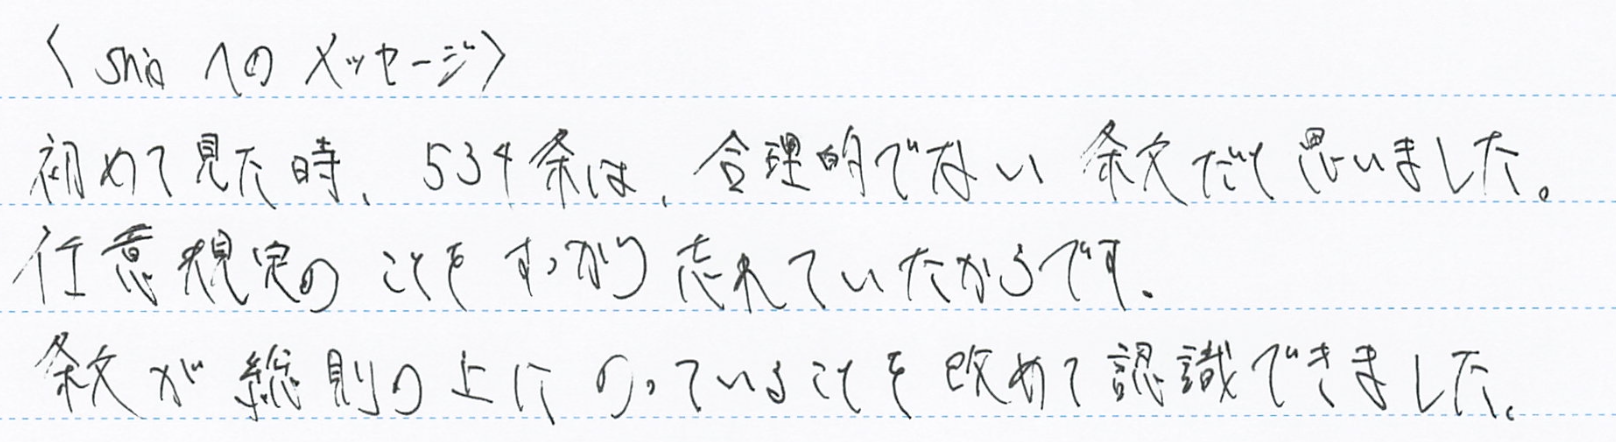 〈shioへのメッセージ〉
初めて見た時、534条は、合理的でない条文だと思いました。
任意規定のことをすっかり忘れていたからです。
条文が総則の上にのっていることを改めて認識できました。